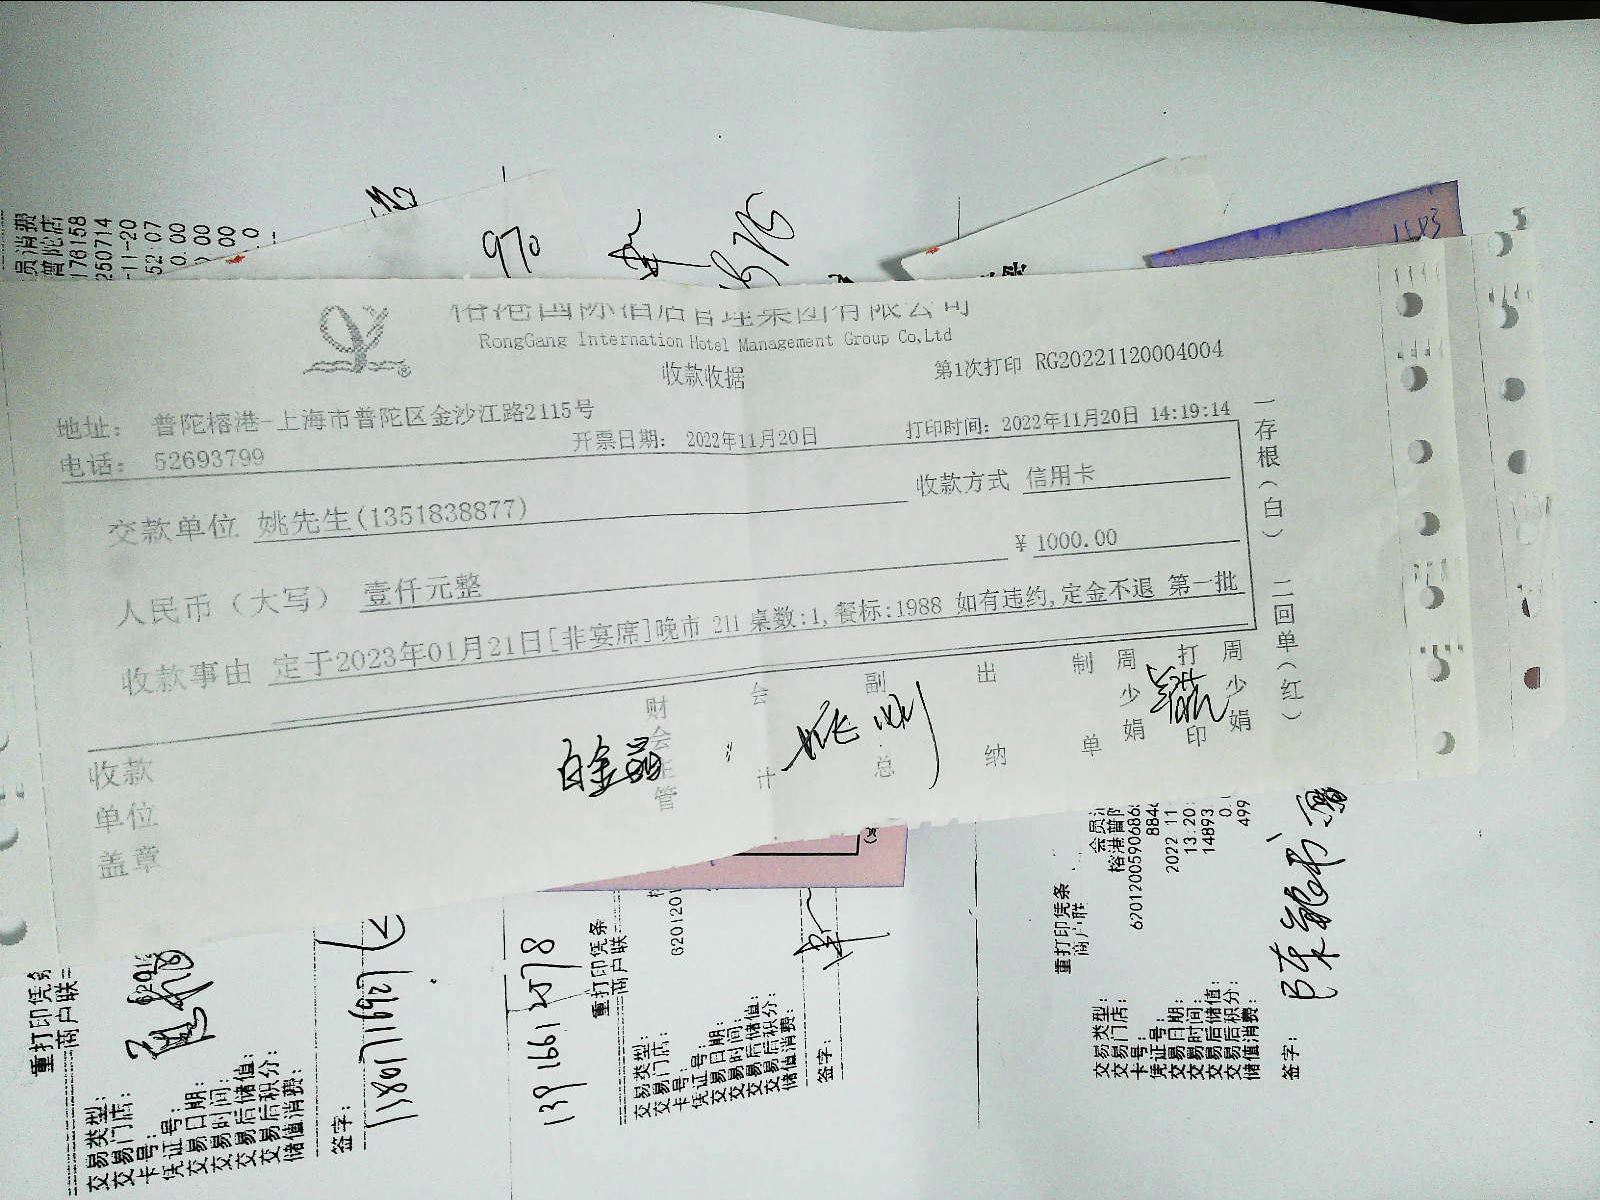 榕港国际酒店管理集团有限公司
RongGang Internation Hotel Management Group Co,Ltd
收款收据
第1次打印 RG20221120004004
地址： 普陀榕港-上海市普陀区金沙江路2115号
电话： 52693799
开票日期： 2022年11月20日
打印时间：2022年11月20日 14:19:14
交款单位 姚先生(1351838877)
收款方式 信用卡
人民币（大写） 壹仟元整
¥ 1000.00
收款事由 定于2023年01月21日[非宴席]晚市 211 桌数:1,餐标:1988 如有违约,定金不退 第一批
一存根（白） 二回单（红）
收款单位盖章
财会主管
白金磊
会计
副总
姚刚
出纳
制单
周少娟
打印
周少娟
员消费
普陀店
176158
250714
-11-20
52:07
0.00
970
1583
重打印凭条
商户联
交易类型：
交易门店：
卡号：
凭证号：
交易日期：
交易时间：
交易后储值：
交易后积分：
储值消费：
签字：
13801711692
139 1661 2578
重打印凭条
商户联
交易类型：
交易门店：
卡号：
凭证号：
交易日期：
交易时间：
交易后储值：
交易后积分：
储值消费：
签字：
重打印凭条
商户联
交易类型：
交易门店：
卡号：
凭证号：
交易日期：
交易时间：
交易后储值：
交易后积分：
储值消费：
签字：
会员
榕港普陀
6201200590686
884
2022 11
13.20
14893
0.
499